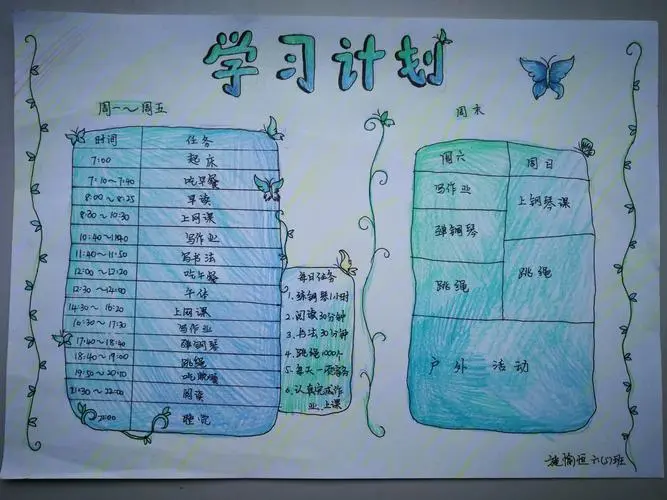 学习计划
周一～周五
时间 任务
7:00 起床
7:10～7:40 吃早餐
8:00～8:25 早读
8:30～10:30 上网课
10:40～11:40 写作业
11:40～11:50 写书法
12:00～12:20 吃午餐
12:30～14:00 午休
14:30～16:20 上网课
16:30～17:30 写作业
17:40～18:40 弹钢琴
18:40～19:00 跳绳
19:50～20:10 吃晚餐
21:30～22:00 阅读
22:00 睡觉
每日任务
1.练钢琴1小时
2.阅读30分钟
3.书法30分钟
4.跳绳1000个
5.每天一项家务
6.认真完成作
业、上课
周末
周六 周日
写作业 上钢琴课
弹钢琴
跳绳 跳绳
户外活动
六(5)班